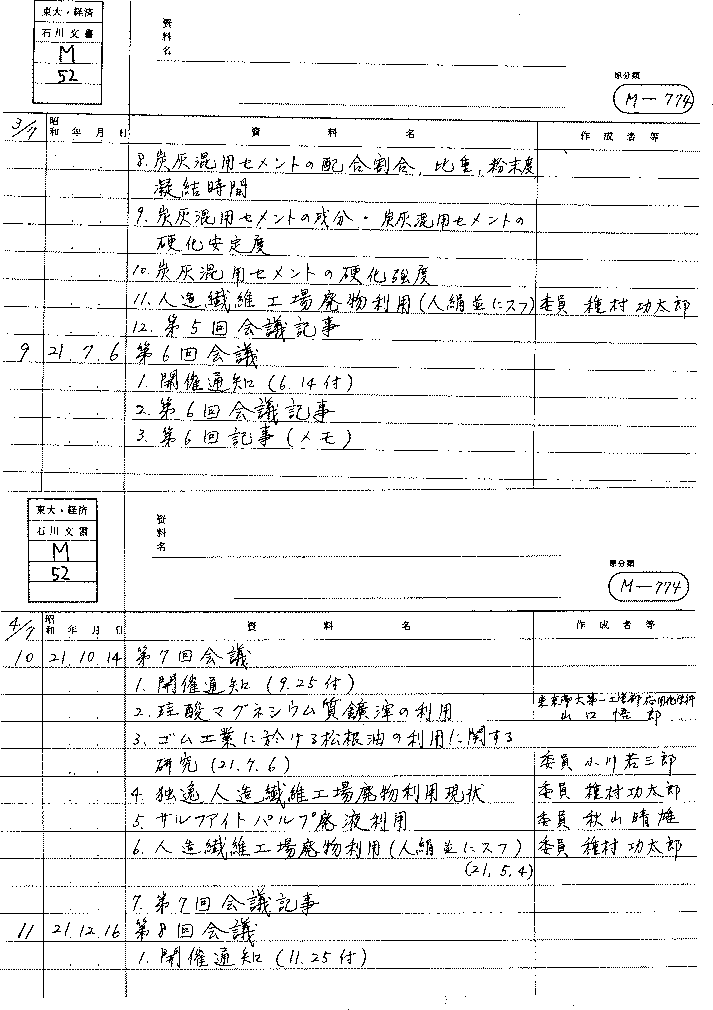 東大・経済
石川文書
M
52
資料名
原分類
M-774
3/7
昭和 年 月 日 資料名 作成者等
8.炭灰混用セメントの配合割合,比重,粉末度
凝結時間
9.炭灰混用セメントの成分・炭灰混用セメントの
硬化安定度
10.炭灰混用セメントの硬化強度
11.人造纖維工場廃物利用(人絹並にスフ) 委員 種村功太郎
12.第5回会議記事
9 21.7.6 第6回会議
1.開催通知(6.14付)
2.第6回会議記事
3.第6回記事(メモ)
東大・経済
石川文書
M
52
資料名
原分類
M-774
4/7
昭和 年 月 日 資料名 作成者等
10 21.10.14 第7回会議
1.開催通知(9.25付)
2.珪酸マグネシウム質鑛滓の利用 東京帝大第一工学部応用化学科
山口悟郎
3.ゴム工業に於ける松根油の利用に関する
研究(21.7.6) 委員 小川若三郎
4.独逸人造纖維工場廃物利用現状 委員 種村功太郎
5.サルファイトパルプ廃液利用 委員 秋山晴雄
6.人造纖維工場廃物利用(人絹並にスフ) 委員 種村功太郎
(21.5.4)
7.第7回会議記事
11 21.12.16 第8回会議
1.開催通知(11.25付)